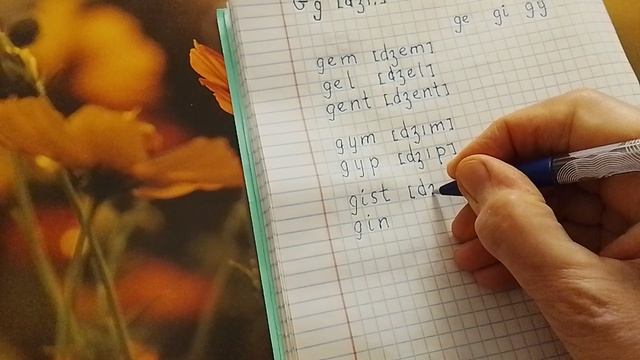 Gg [dʒi:]
ge gi gy
gem [dʒem]
gel [dʒel]
gent [dʒent]
gym [dʒım]
gyp [dʒıp]
gist [dʒ
gin